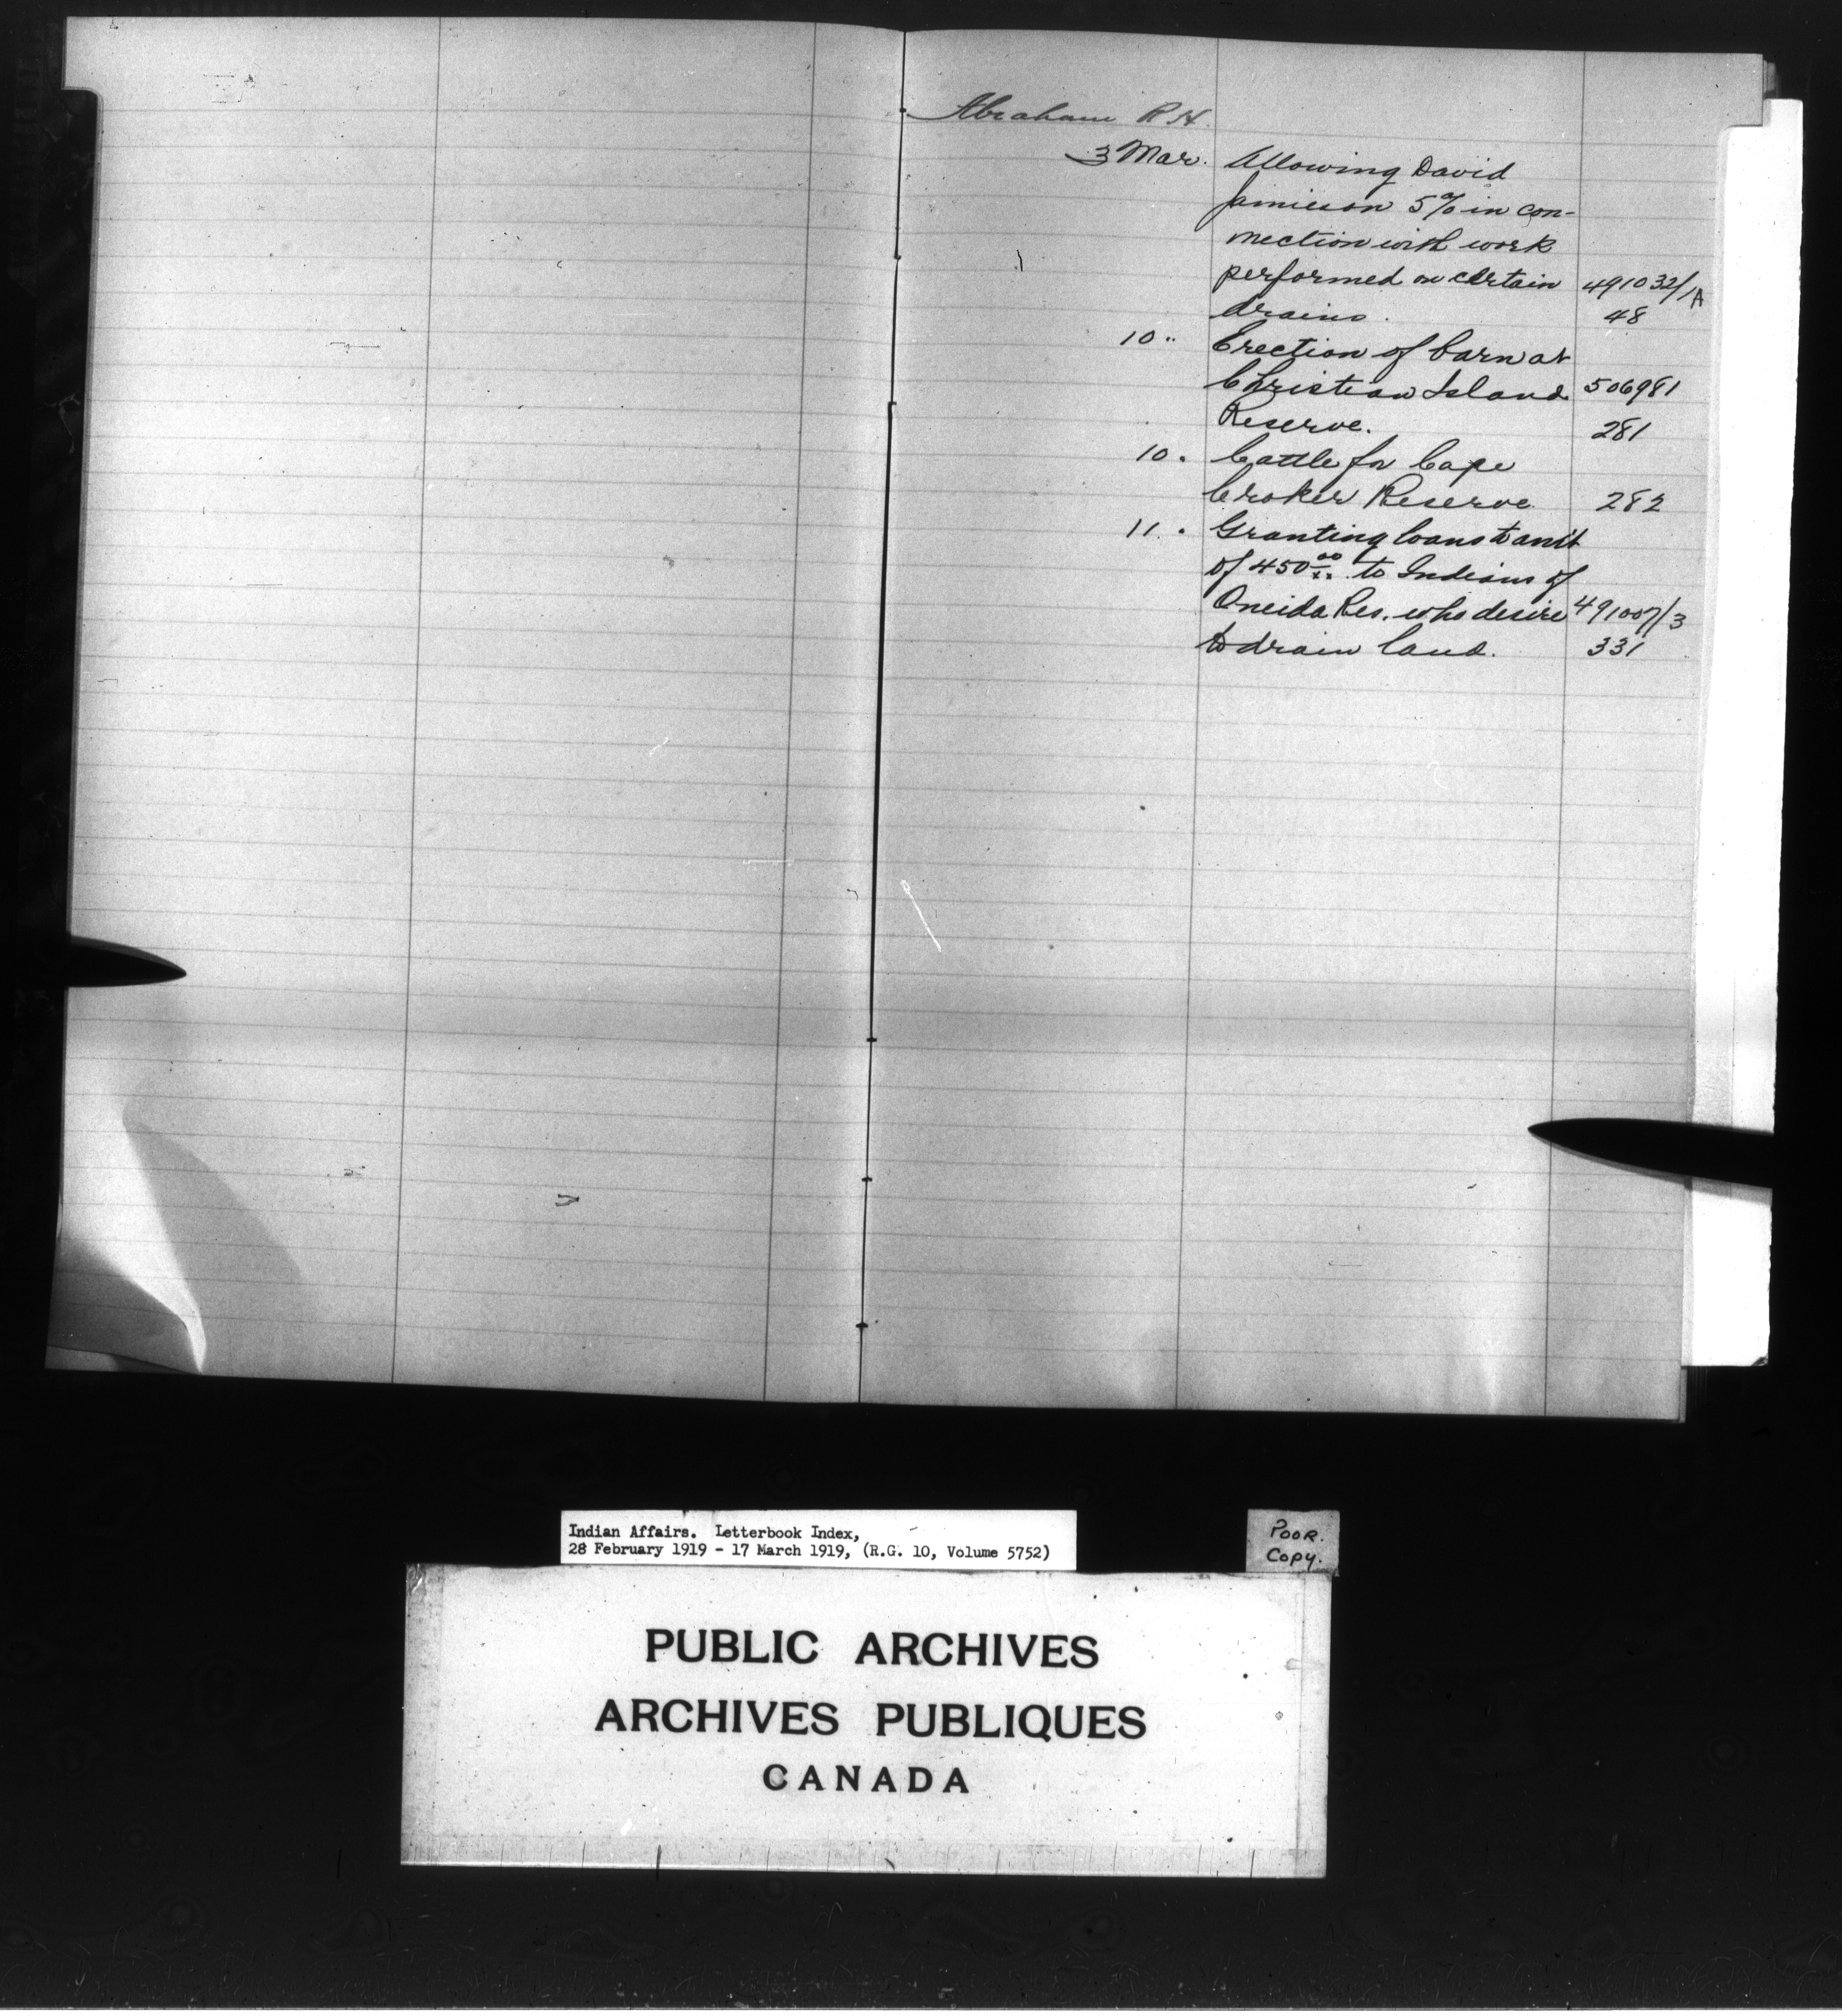 Abraham R H.
3 Mar. Allowing David
Jamieson 5% in con-
nection with work
performed on certain 491032/1A
drains. 48
10 " Erection of barn at
Christian Island 506981
Reserve. 281
10 " Cattle for Cape
Croker Reserve 282
11 " Granting loans to amt
of 450 00/xx to Indians of
Oneida Res. who desire 491007/3
to drain land. 331
Indian Affairs. Letterbook Index,
28 February 1919 - 17 March 1919, (R.G. 10, Volume 5752)
POOR.
COPY.
PUBLIC ARCHIVES
ARCHIVES PUBLIQUES
CANADA